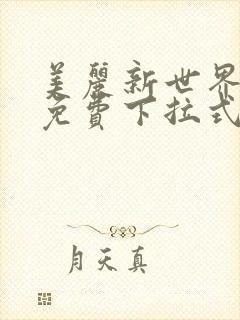 美麗新世界
免費下拉式
月天真